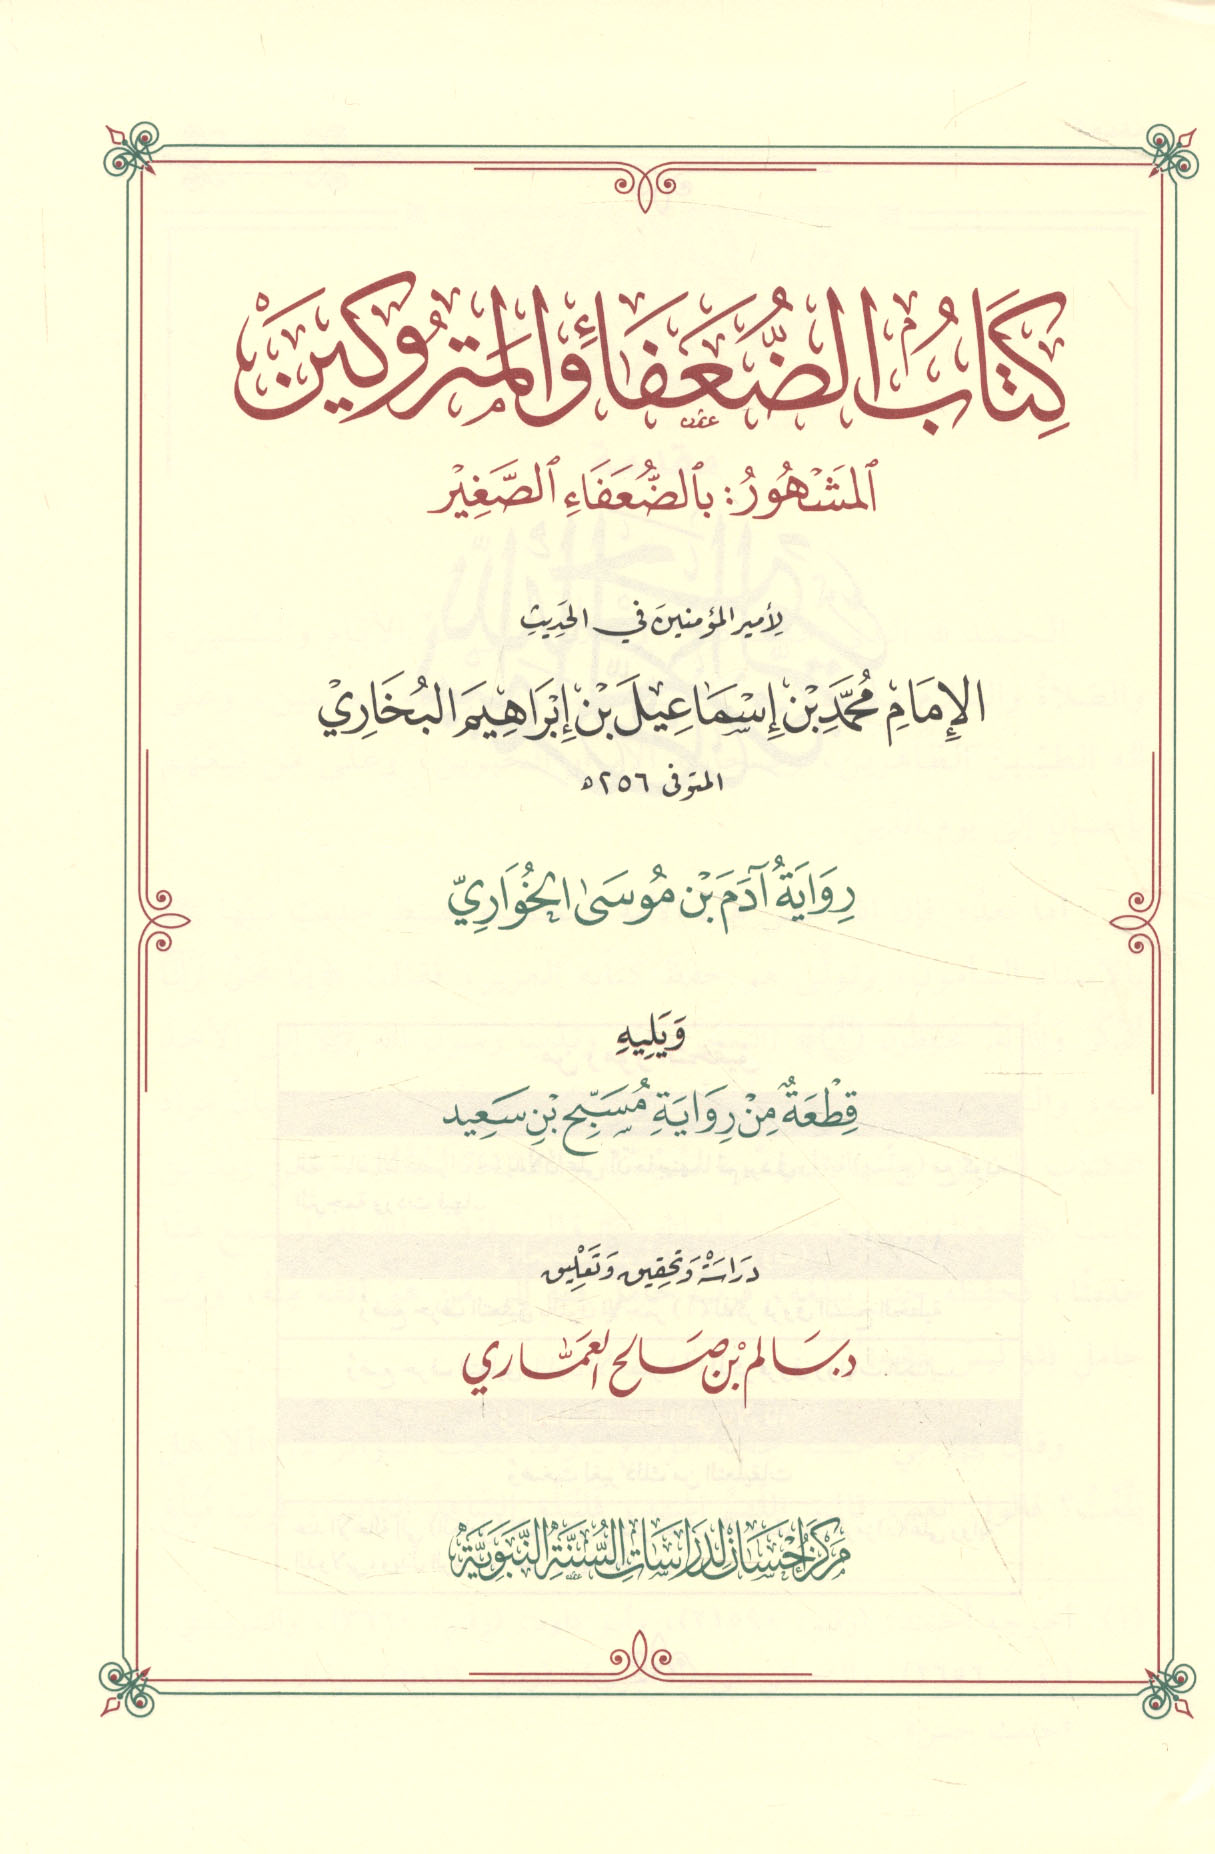 كِتَابُ الضُّعَفَاءِ وَالمَتْرُوكِينَ
المَشْهُورُ: بِالضُّعَفَاءِ الصَّغِيْرِ
لِأمير المؤمنينَ في الحَدِيثِ
الإِمَامِ مُحَمَّدِ بْنِ إِسْمَاعِيلَ بْنِ إِبْرَاهِيمَ البُخَارِيْ
المتوفى ٢٥٦ه
رِوَايَةُ آدَمَ بْنِ مُوسَىٰ الخُوَارِيِّ
وَيَلِيهِ
قِطْعَةٌ مِنْ رِوَايَةِ مُسَبِّحِ بْنِ سَعِيد
دَرَاسَةُ وَتَحقِيق وَتَعْلِيق
د. سَالم بْن صَالح العمَّاري
مَركَز إحْسَان لِدَرَاسَاتِ السُّنَّةِ النَّبَوِيَّةِ